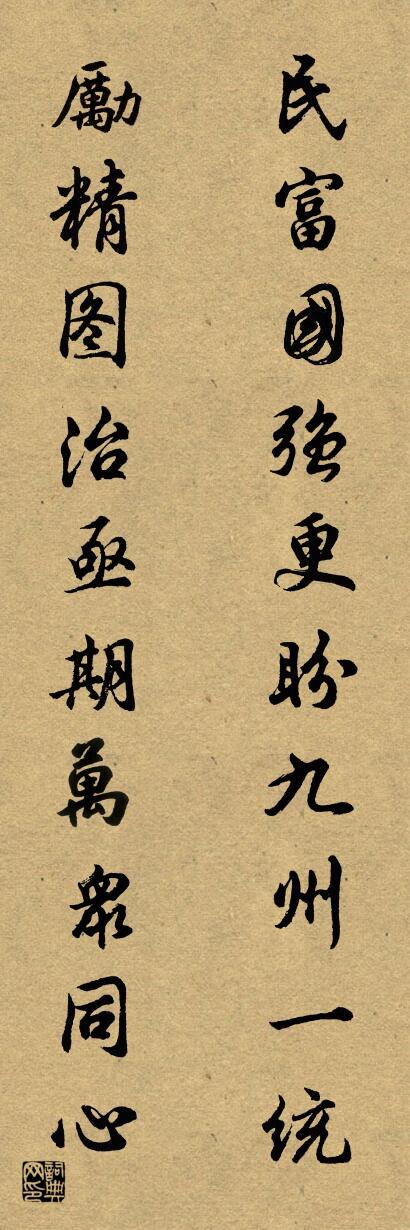 民富國强更盼九州一统
勵精图治亟期萬衆同心
詞典网印